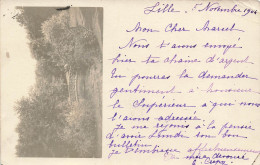 Lille, 5 Novembre 1904
Mon Cher Marcel,
Nous t'avons envoyé
hier ta chaine d'argent
Tu pourras la demander
gentiment à
le Supérieur à qui nous
l'avons adressée.
Je me réjouis à la pensée
d'avoir Lundi ton bon
bulletin.
Je t'embrasse affectueusement
Ta mère dévouée